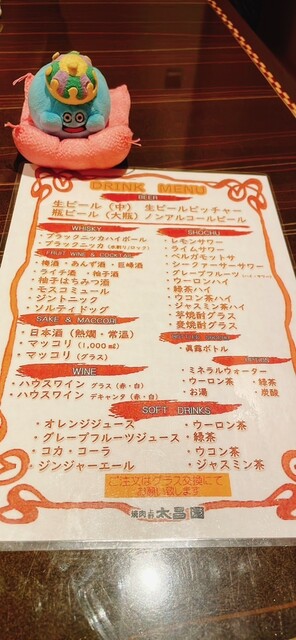 DRINK MENU
BEER
生ビール（中） 生ビールピッチャー
瓶ビール（大瓶） ノンアルコールビール
WHISKY
・ブラックニッカハイボール
・ブラックニッカ（水割り/ロック）
FRUIT WINE & COCKTAIL
・梅酒・あんず酒・巨峰酒
・ライチ酒 ・柚子酒
・柚子はちみつ酒
・モスコミュール
・ジントニック
・ソルティドッグ
SAKE & MACCORI
・日本酒（熱燗・常温）
・マッコリ（1,000㎖）
・マッコリ（グラス）
WINE
・ハウスワイン グラス（赤・白）
・ハウスワイン デキャンタ（赤・白）
SHOCHU
・レモンサワー
・ライムサワー
・ベルガモットサ
・シークヮーサーサワー
・グレープフルーツ
・ウーロンハイ
・緑茶ハイ
・ウコン茶ハイ
・ジャスミン茶ハイ
・芋焼酎グラス
・麦焼酎グラス
・眞露ボトル
・ミネラルウォーター
・ウーロン茶 ・緑茶
・お湯 ・炭酸
SOFT DRINKS
・オレンジジュース
・グレープフルーツジュース
・コカ・コーラ
・ジンジャーエール
・ウーロン茶
・緑茶
・ウコン茶
・ジャスミン茶
ご注文はグラス交換にて
お願い致します
焼肉の 太昌園